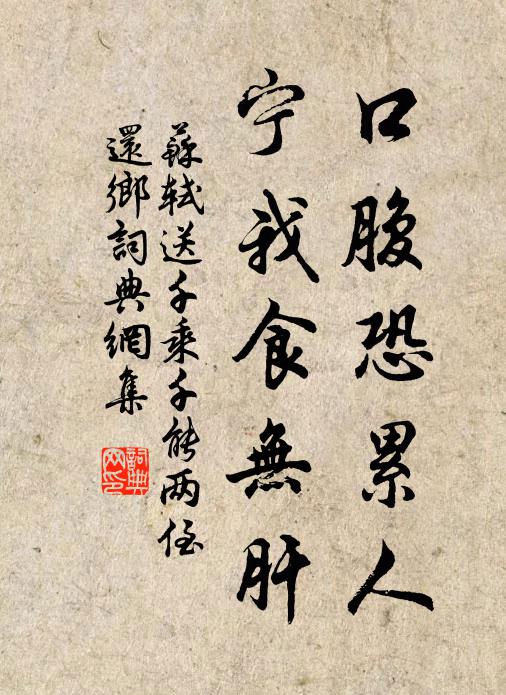 口腹恐累人
宁我食無肝
蘇軾送千乘千能两侄
還鄉詞典網集
詞典
网印